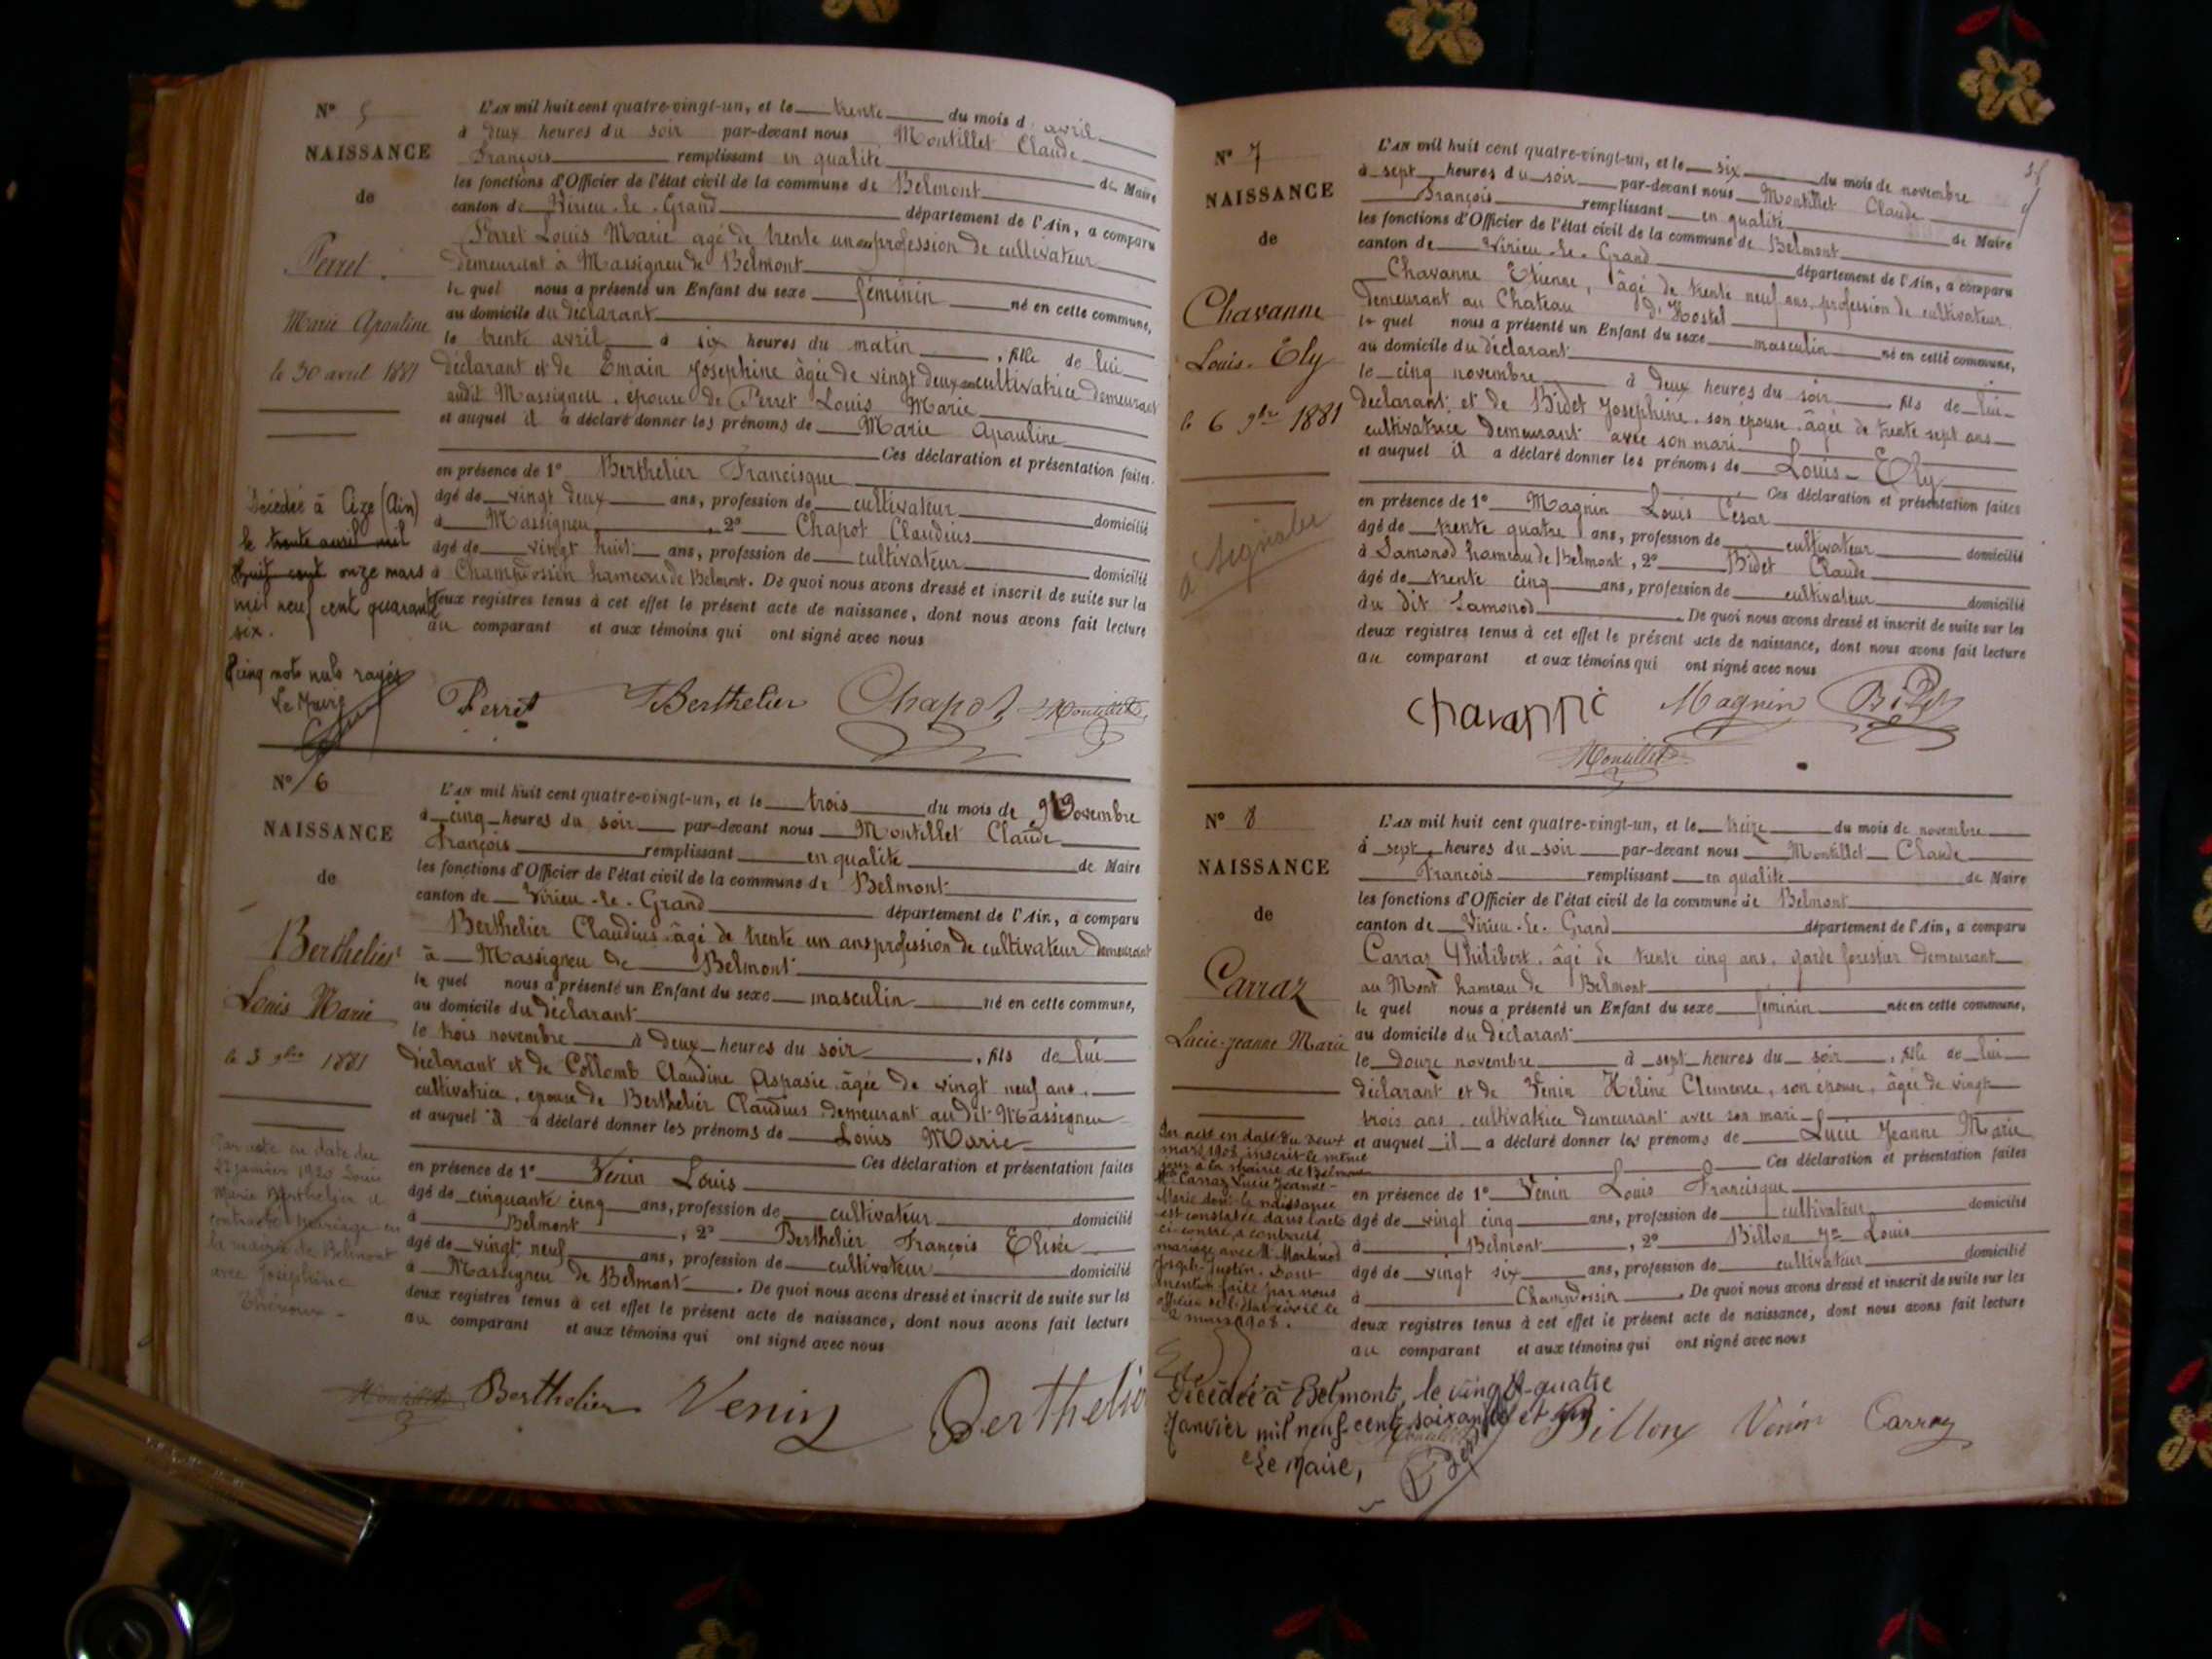 N° 5
NAISSANCE
de
Perret
Marie Apauline
le 30 avril 1881
Décédée à Cize (Ain)
le trente avril mil
huit cent onze mars
mil neuf cent quarante
six.
Cinq mots nuls rayés
Le Maire
L'AN mil huit cent quatre-vingt-un, et le trente du mois d avril
à deux heures du soir par-devant nous Montillet Claude
François remplissant en qualité de Maire
les fonctions d'Officier de l'état civil de la commune de Belmont
canton de Virieu-le-Grand département de l'Ain, a comparu
Perret Louis Marie agé de trente un ans profession de cultivateur
demeurant à Massigneu de Belmont
le quel nous a présenté un Enfant du sexe féminin né en cette commune,
au domicile du déclarant
le trente avril à six heures du matin, fille de lui
déclarant et de Emain Josephine âgée de vingt deux ans cultivatrice demeurant
audit Massigneu, épouse de Perret Louis Marie
et auquel il a déclaré donner les prénoms de Marie Apauline
Ces déclaration et présentation faites
en présence de 1° Berthelier Francisque
âgé de vingt deux ans, profession de cultivateur domicilié
à Massigneu, 2° Chapot Claudius
âgé de vingt huit ans, profession de cultivateur domicilié
à Champdossin hameau de Belmont. De quoi nous avons dressé et inscrit de suite sur les
deux registres tenus à cet effet le présent acte de naissance, dont nous avons fait lecture
au comparant et aux témoins qui ont signé avec nous
Perret Berthelier Chapot Montillet
N° 6
NAISSANCE
de
Berthelier
Louis Marie
le 3 9bre 1881
Par acte en date du
22 janvier 1920 Louis
Marie Berthelier a
contracté mariage en
la mairie de Belmont
avec Joséphine
L'AN mil huit cent quatre-vingt-un, et le trois du mois de Novembre
à cinq heures du soir par-devant nous Montillet Claude
François remplissant en qualité de Maire
les fonctions d'Officier de l'état civil de la commune de Belmont
canton de Virieu-le-Grand département de l'Ain, a comparu
Berthelier Claudius, âgé de trente un ans profession de cultivateur demeurant
à Massigneu de Belmont
le quel nous a présenté un Enfant du sexe masculin né en cette commune,
au domicile du déclarant
le trois novembre à deux heures du soir, fils de lui
déclarant et de Collomb Claudine Aspasie âgée de vingt neuf ans,
cultivatrice, epouse de Berthelier Claudius demeurant au dit Massigneu
et auquel il a déclaré donner les prénoms de Louis Marie
Ces déclaration et présentation faites
en présence de 1° Venin Louis
âgé de cinquante cinq ans, profession de cultivateur domicilié
à Belmont, 2° Berthelier François Elisée
âgé de vingt neuf ans, profession de cultivateur domicilié
à Massigneu de Belmont. De quoi nous avons dressé et inscrit de suite sur les
deux registres tenus à cet effet le présent acte de naissance, dont nous avons fait lecture
au comparant et aux témoins qui ont signé avec nous
Montillet Berthelier Venin Berthelier
N° 7
NAISSANCE
de
Chavanne
Louis-Ely
le 6 9bre 1881
à signaler
L'AN mil huit cent quatre-vingt-un, et le six du mois de novembre
à sept heures du soir par-devant nous Montillet Claude
François remplissant en qualité de Maire
les fonctions d'Officier de l'état civil de la commune de Belmont
canton de Virieu-le-Grand département de l'Ain, a comparu
Chavanne Etienne, âgé de trente neuf ans, profession de cultivateur
demeurant au Chateau d'Hostel
le quel nous a présenté un Enfant du sexe masculin né en cette commune,
au domicile du déclarant
le cinq novembre à deux heures du soir, fils de lui
déclarant et de Bidet Josephine, son épouse, âgée de trente sept ans
cultivatrice demeurant avec son mari
et auquel il a déclaré donner les prénoms de Louis-Ely
Ces déclaration et présentation faites
en présence de 1° Magnin Louis César
âgé de trente quatre ans, profession de cultivateur domicilié
à Samonod hameau de Belmont, 2° Bidet Claude
âgé de trente cinq ans, profession de cultivateur domicilié
au dit Samonod. De quoi nous avons dressé et inscrit de suite sur les
deux registres tenus à cet effet le présent acte de naissance, dont nous avons fait lecture
au comparant et aux témoins qui ont signé avec nous
Chavanne Magnin Bidet
Montillet
N° 8
NAISSANCE
de
Carraz
Lucie-Jeanne Marie
Par acte en date du neuf
mars 1908, inscrit le même
jour à la mairie de Belmont
Mlle Carraz Lucie Jeanne-
Marie dont la naissance
est constatée dans l'acte
ci-contre, a contracté
mariage avec M. Martinod
Joseph-Justin. Dont
mention faite par nous
officier de l'état civil le
mars 1908.
L'AN mil huit cent quatre-vingt-un, et le treize du mois de novembre
à sept heures du soir par-devant nous Montillet Claude
François remplissant en qualité de Maire
les fonctions d'Officier de l'état civil de la commune de Belmont
canton de Virieu-le-Grand département de l'Ain, a comparu
Carraz Philibert, âgé de trente cinq ans, garde forestier demeurant
au Mont hameau de Belmont
le quel nous a présenté un Enfant du sexe féminin née en cette commune,
au domicile du déclarant
le douze novembre à sept heures du soir, fille de lui
déclarant et de Venin Hélène Clemence, son épouse, âgée de vingt
trois ans, cultivatrice demeurant avec son mari
et auquel il a déclaré donner les prénoms de Lucie Jeanne Marie
Ces déclaration et présentation faites
en présence de 1° Venin Louis Francisque
âgé de vingt cinq ans, profession de cultivateur domicilié
à Belmont, 2° Billon Jn Louis
âgé de vingt six ans, profession de cultivateur domicilié
à Champdossin. De quoi nous avons dressé et inscrit de suite sur les
deux registres tenus à cet effet le présent acte de naissance, dont nous avons fait lecture
au comparant et aux témoins qui ont signé avec nous
Décédée à Belmont, le vingt-quatre
Janvier mil neuf cent soixante et un
Le Maire,
Montillet Billon Venin Carraz